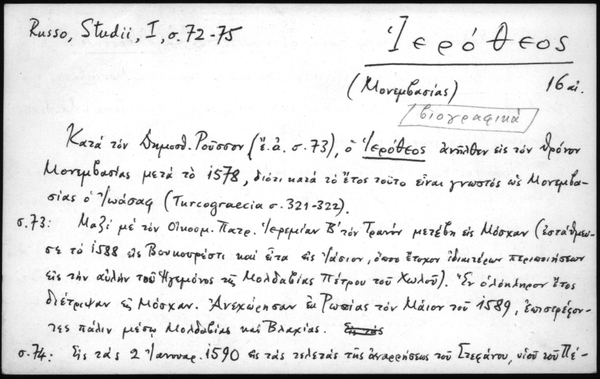 Russo, Studii, I, σ. 72-75
Ἱερόθεος
(Μονεμβασίας) 16 αἰ.
βιογραφικά
Κατά τόν Δημοσθ. Ροῦσσον (ἔ.ἀ. σ. 73), ὁ Ἱερόθεος ἀνῆλθεν εἰς τόν θρόνον
Μονεμβασίας μετά τό 1578, διότι κατά τό ἔτος τοῦτο εἶναι γνωστός ὡς Μονεμβα-
σίας ὁ Ἰωάσαφ (Turcograecia σ. 321-322).
σ. 73: Μαζί μέ τόν Οἰκουμ. Πατρ. Ἱερεμίαν Β' τόν Τρανόν μετέβη εἰς Μόσχαν (ἐστάθμευ-
σε τό 1588 εἰς Βουκουρέστι καί εἶτα εἰς Ἰάσιον, ὅπου ἔτυχον ἰδιαιτέρων περιποιήσεων
εἰς τήν αὐλήν τοῦ Ἡγεμόνος τῆς Μολδαβίας Πέτρου τοῦ Χωλοῦ). Ἕν ὁλόκληρον ἔτος
διέτριψαν εἰς Μόσχαν. Ἀνεχώρησαν ἐκ Ρωσίας τόν Μάιον τοῦ 1589, ἐπιστρέφον-
τες πάλιν μέσῳ Μολδαβίας καί Βλαχίας.
σ. 74: Εἰς τάς 2 Ἰανουαρ. 1590 εἰς τάς τελετάς τῆς ἀναρρήσεως τοῦ Στεφάνου, υἱοῦ τοῦ Πέ-